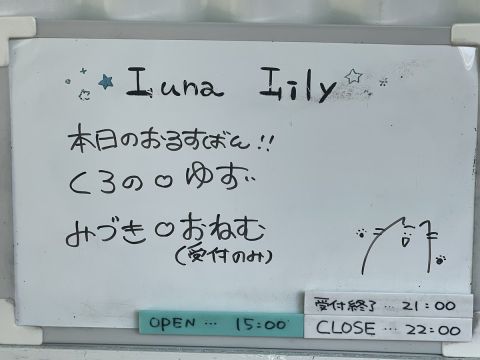 Luna Lily
本日のおるすばん!!
くろの♡ゆず
みづき♡おねむ
(受付のみ)
受付終了… 21:00
OPEN… 15:00
CLOSE… 22:00